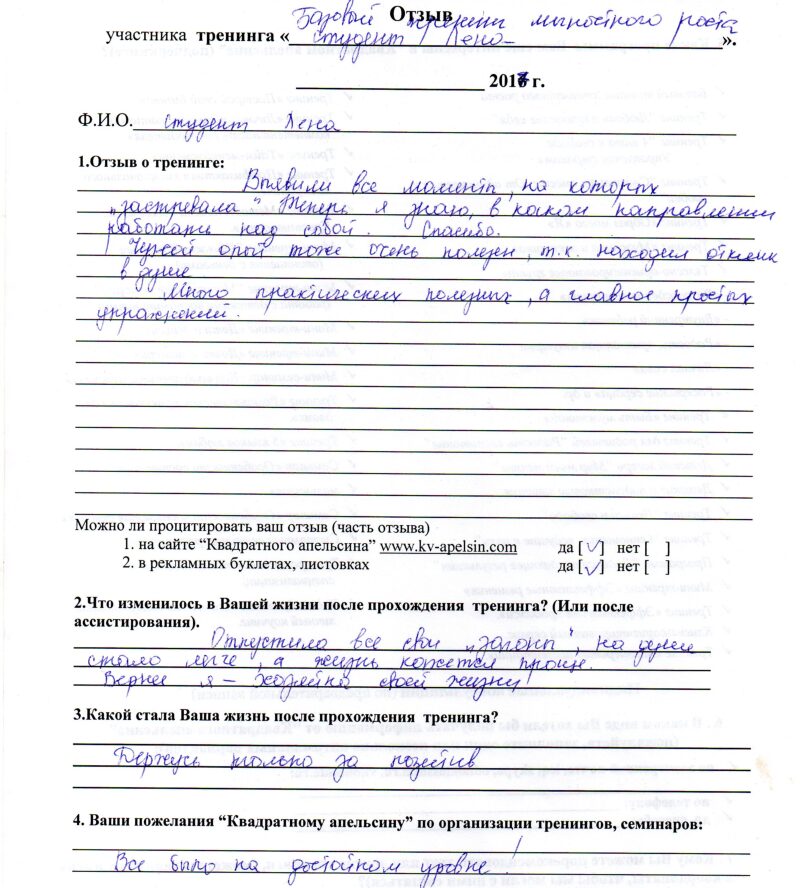 Отзыв
Базовый тренинг личностного роста
участника тренинга « студент Лена ».
2017 г.
Ф.И.О. студент Лена
1.Отзыв о тренинге:
Выявили все моменты, на которых
"застревала". Теперь я знаю, в каком направлении
работать над собой. Спасибо.
Чужой опыт тоже очень полезен, т.к. находил отклик
в душе
Много практических полезных, а главное простых
упражнений.
Можно ли процитировать ваш отзыв (часть отзыва)
1. на сайте “Квадратного апельсина” www.kv-apelsin.com да [√] нет [ ]
2. в рекламных буклетах, листовках да [√] нет [ ]
2.Что изменилось в Вашей жизни после прохождения тренинга? (Или после
ассистирования).
Отпустила все свои „загоны", на душе
стало легче, а жизнь кажется проще.
Вернее я – хозяйка своей жизни!
3.Какой стала Ваша жизнь после прохождения тренинга?
Держусь только за позитив
4. Ваши пожелания “Квадратному апельсину” по организации тренингов, семинаров:
Все было на достойном уровне!